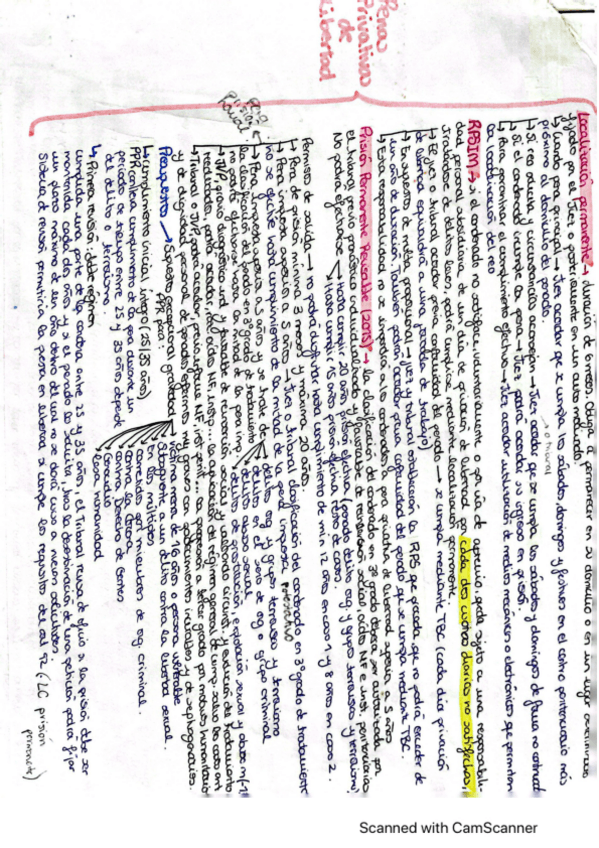 Penas
Privativas
de
Libertad
Localización permanente → duración de 6 meses. Obliga a permanecer en su domicilio o en un lugar determinado
fijado por el Juez o posteriormente en un auto motivado.
↳ Cuando pena principal → Juez acordar que se cumpla los sábados, domingos y festivos en el centro penitenciario más
próximo al domicilio del penado.
↳ o tribunal
↳ Si reo solicita y circunstancias aconsejan → Juez acordar que se cumpla los sábados y domingos de forma no continuada
↳ Si el condenado incumple la pena → Juez podrá acordar su ingreso en prisión.
↳ Para garantizar el cumplimiento efectivo → Juez acordar utilización de medios mecánicos o electrónicos que permitan
la localización del reo
RPSIM → si el condenado no satisface, voluntariamente o por vía de apremio, queda sujeto a una responsabili-
dad personal subsidiaria de un día de privación de libertad por cada dos cuotas diarias no satisfechas,
tratándose de delitos, podrá cumplirse mediante localización permanente.
↳ El juez o tribunal acordar previa conformidad del penado → se cumpla mediante TBC (cada día privación
de libertad equivaldrá a una jornada de trabajo)
↳ En supuestos de multa proporcional → Juez y tribunal establecerán la RPS que proceda que no podrá exceder de
un año de duración. También podrá acordar previa conformidad del penado que se cumpla mediante TBC.
↳ Esta responsabilidad no se impondrá a los condenados a pena privativa de libertad superior a 5 años
Prisión Permanente Revisable (2015) → la clasificación del condenado en 3º grado deberá ser autorizada por
el tribunal previo pronóstico individualizado y favorable de reinserción social, oídos MF e inst. penitenciarias
No podrá efectuarse
↳ Hasta cumplir 20 años prisión efectiva (penado delito org. y grupo terrorista y terrorismo)
↳ Hasta cumplir 15 años prisión efectiva resto de casos.
Permiso de salida → no podrá disfrutar hasta cumplimiento de min 12 años en caso 1 y 8 años en caso 2.
Pena
Prisión
Normal
↳ Pena de prisión mínima 3 meses y máxima 20 años.
↳ Pena impuesta superior a 5 años → Juez o Tribunal clasificación del condenado en 3º grado de tratamiento
no se efectúe hasta cumplimiento de la mitad de la pena impuesta potestativo
↳ Pena impuesta superior a 5 años y se trate de
la clasificación del penado en 3º grado de tratamiento
no podrá efectuarse hasta la mitad de la pena imp.
delito org. y grupos terroristas y terrorismo
delito en el seno de org o grupo criminal
delito abuso sexual
delitos de prostitución, explotación sexual y abuso
↳ JVP, previo diagnóstico ind y favorable de reinserción social y valorando circuns. y evolución del tratamiento
reeducador, podrá acordar y oídos MF, insp..., la aplicación del régimen general de cump. salvo los casos ant
↳ Tribunal o JVP podrá acordar previo informe MF, inst penit... progresión a tercer grado por motivos humanitarios
y de dignidad personal de penados enfermos muy graves con padecimientos incurables y de septuagenarios.
Presupuestos → Supuestos excepcional gravedad
PPR para:
↳ víctima menor de 16 años o persona vulnerable.
↳ subsiguiente a un delito contra la libertad sexual.
↳ en los múltiples
↳ cometidos por miembros de org criminal.
↳ contra la corona
↳ contra Derecho de Gentes
↳ Genocidio
↳ Lesa humanidad
↳ Cumplimiento inicial íntegro (25/35 años)
PPR conlleva cumplimiento de la pena durante un
periodo de tiempo entre 25 y 35 años depende
del delito o terrorismo.
↳ Primera revisión de este régimen
cumplida una parte de la condena entre 25 y 35 años, el Tribunal revisa de oficio si la prisión debe ser
mantenida cada dos años y si el penado lo solicita, tras la desestimación de una petición podrá fijar
un plazo máximo de un año dentro del cual no se dará curso a nuevas solicitudes.
Sistema de revisión permitiría la puesta en libertad si cumple los requisitos del art 92 (LC prisión
permanente)
Scanned with CamScanner